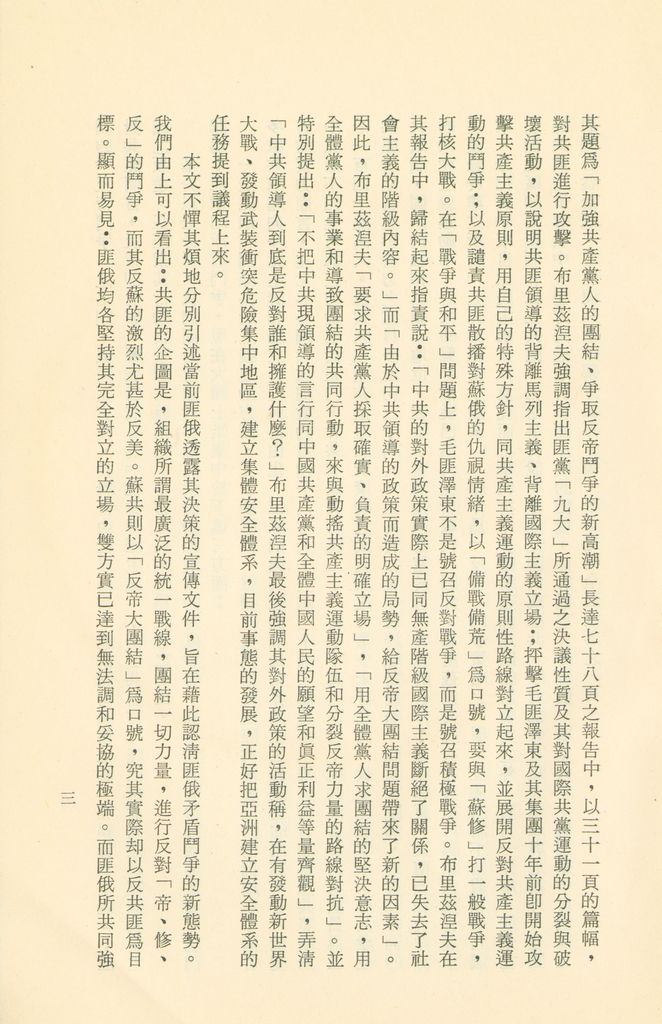 其題爲「加強共產黨人的團結、爭取反帝鬥爭的新高潮」長達七十八頁之報告中，以三十一頁的篇幅，
對共匪進行攻擊。布里茲湼夫強調指出匪黨「九大」所通過之決議性質及其對國際共黨運動的分裂與破
壞活動，以說明共匪領導的背離馬列主義、背離國際主義立場；抨擊毛匪澤東及其集團十年前卽開始攻
擊共產主義原則，用自己的特殊方針，同共產主義運動的原則性路線對立起來，並展開反對共產主義運
動的鬥爭；以及譴責共匪散播對蘇俄的仇視情緒，以「備戰備荒」爲口號，要與「蘇修」打一般戰爭，
打核大戰。在「戰爭與和平」問題上，毛匪澤東不是號召反對戰爭，而是號召積極戰爭。布里茲湼夫在
其報告中，歸結起來指責說：「中共的對外政策實際上已同無產階級國際主義斷絕了關係，已失去了社
會主義的階級內容。」而「由於中共領導的政策而造成的局勢，給反帝大團結問題帶來了新的因素」。
因此，布里茲湼夫「要求共產黨人採取確實、負責的明確立場」，「用全體黨人求團結的堅決意志，用
全體黨人的事業和導致團結的共同行動，來與動搖共產主義運動隊伍和分裂反帝力量的路線對抗」。並
特別提出：「不把中共現領導的言行同中國共產黨和全體中國人民的願望和眞正利益等量齊觀」，弄淸
「中共領導人到底是反對誰和擁護什麼？」布里茲湼夫最後強調其對外政策的活動稱，在有發動新世界
大戰、發動武裝衝突危險集中地區，建立集體安全體系，目前事態的發展，正好把亞洲建立安全體系的
任務提到議程上來。
本文不憚其煩地分別引述當前匪俄透露其決策的宣傳文件，旨在藉此認淸匪俄矛盾鬥爭的新態勢。
我們由上可以看出：共匪的企圖是，組織所謂最廣泛的統一戰線，團結一切力量，進行反對「帝、修、
反」的鬥爭，而其反蘇的激烈尤甚於反美。蘇共則以「反帝大團結」爲口號，究其實際却以反共匪爲目
標。顯而易見：匪俄均各堅持其完全對立的立場，雙方實已達到無法調和妥協的極端。而匪俄所共同強
三